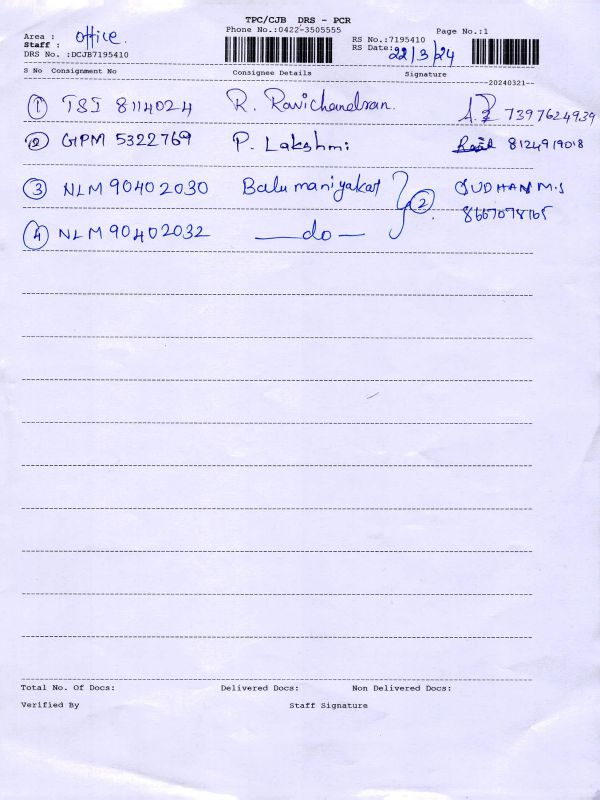 TPC/CJB DRS - PCR
Phone No.:0422-3505555
Page No.:1
Area : office.
Staff :
DRS No. :DCJB7195410
RS No.:7195410
RS Date: 22/3/24
S No Consignment No Consignee Details Signature
--20240321--
1 TSJ 8114024 R. Ravichandran. 7397624939
2 GPM 5322769 P. Lakshmi 8124919018
3 NLM 90402030 Balumaniyakat 2 SUDHAN M.S
8667078165
4 NLM 90402032 —do—
Total No. Of Docs: Delivered Docs: Non Delivered Docs:
Verified By Staff Signature